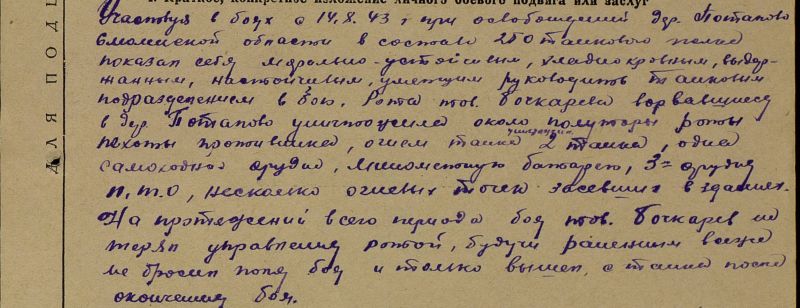 I. Краткое, конкретное изложение личного боевого подвига или заслуг
Участвуя в боях с 14.8.43 г при освобождений дер. Потапово
Смоленской области в составе 250 танкового полка
показал себя морально-устойчивым, хладнокровным, выдер-
жанным, настойчивым, умеющим руководить танковым
подразделением в бою. Рота тов. Бочкарева ворвавшись
в дер. Потапово уничтожила около полуторы роты
пехоты противника, огнем танка 2 танка, одно
самоходное орудие, минометную батарею, 3 орудия
п.т.о, несколько огневых точек засевших в зданиях.
На протяжений всего периода боя тов. Бочкарев не
терял управления ротой, будучи раненным
не бросил поле боя и только вышел с танка после
окончания боя.
ДЛЯ ПОДШ